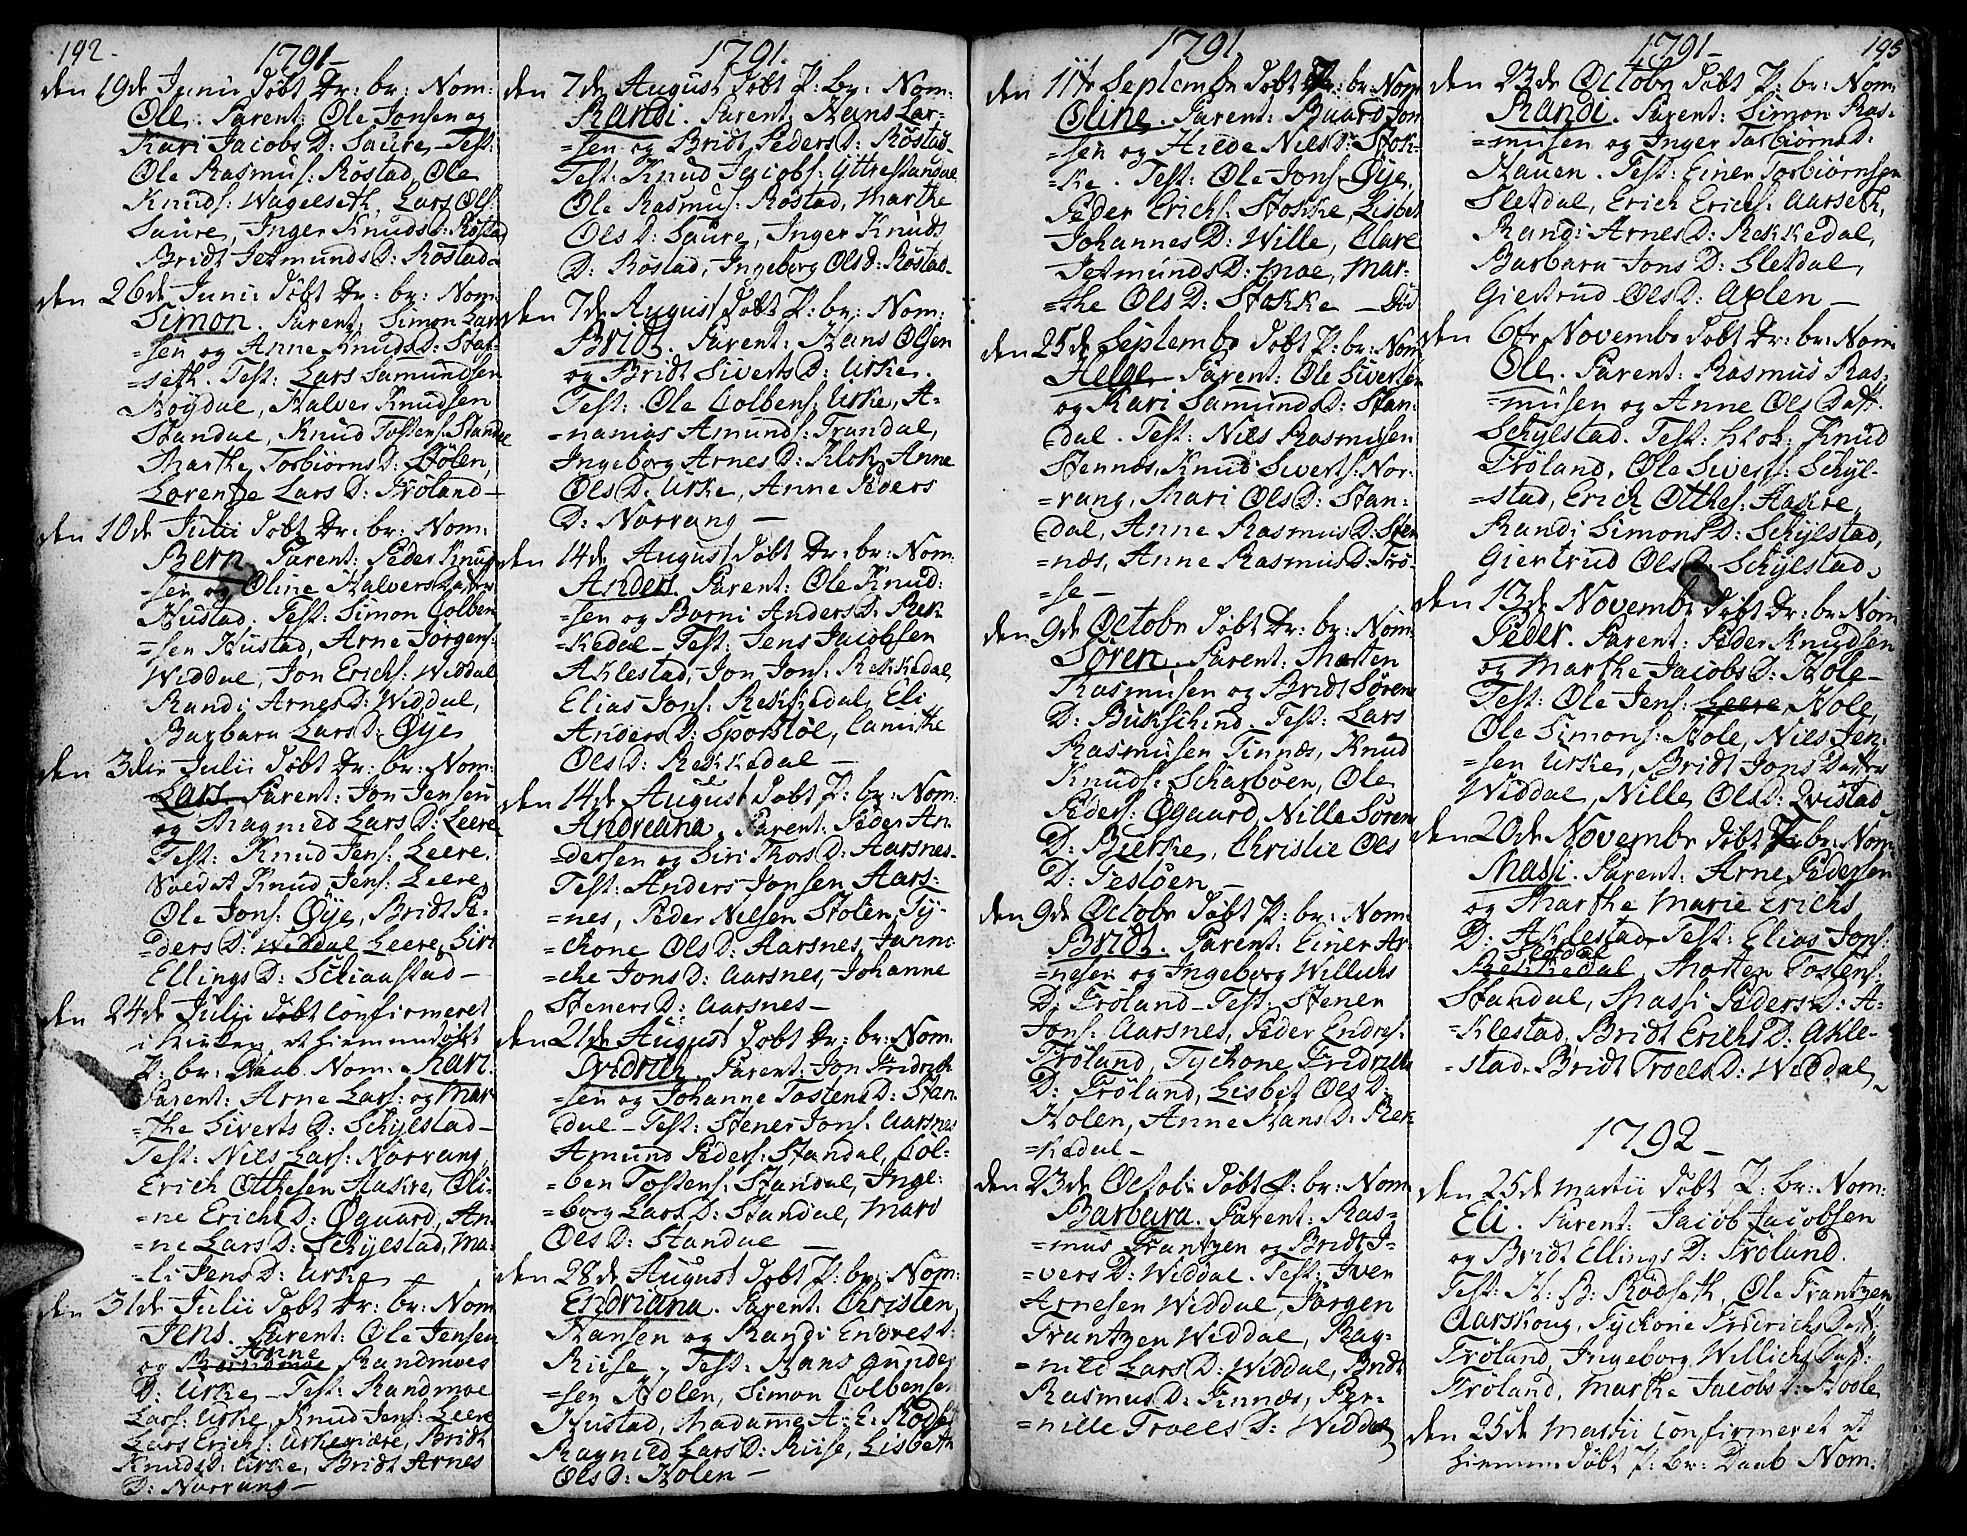 192-
1791-
den 19de Junii döbt Dr: br: Nom:
Ole. Parent: Ole Jonsen og
Kari Jacobs D: Saure - Test:
Ole Rasmus: Röstad, Ole
Knuds: Wagelseth, Lars Ols:
Saure, Inger Knuds D: Röstad
Bridt Jetmunds D: Röstad-
den 26de Junii döbt Dr: br: Nom:
Simon. Parent: Simon Lar-
=sen og Anne Knuds D: Star-
=seth. Test: Lars Samundsen
Nöÿdal, Halver Knudsen
Standal, Knud Tostens: Standal
Marthe Torbiörns D: Stölen,
Lorentze Lars D: Fröland-
den 10de Julii döbt Dr: br: Nom:
Bern Parent: Peder Knud-
=sen og Oline Halvers Datter
Hustad. Test: Simon Colben-
=sen Hustad, Arne Jörgens:
Widdal, Jon Erichs: Widdal
Randi Arnes D: Widdal,
Barbara Lars D: Öye
den 3die Julii döbt Dr: br: Nom:
Lars. Parent: Jon Jensen
og Magnild Lars D: Leere
Test: Knud Jens: Leere.
Sved A Knud Jens: Leere,
Ole Jons: Öye, Bridt Pe-
=ders D: Widdal Leere, Siri
Ellings D: Schaastad-
den 24de Julii döbt confirmeret
i Kirken et hiemmedöbt
P: br: Daab. Nom: Kari.
Parent: Arne Lars: og Mar-
=the Siverts D: Schylestad-
Test: Niels Lars: Norvang,
Erich Otthesen Aakre, Oli-
=ne Erichs D: Ögaard, An-
=ne Lars D: Schylestad, Ma-
=li Jens D: Urke -
den 31de Julii döbt Dr: br: Nom
Jens. Parent: Ole Jensen
Anne
og Randmoe Randmoes
D: Urke - Test: Randmoe
Lars: Urke, Knud Jens: Leere
Lars Erichs: Urkegiære, Bridt
Knuds D: Urke, Bridt Arnes
D: Norvang-
1791.
den 7de August döbt P: br: Nom:
Randi. Parent: Hans Lar-
=sen og Bridt Peders D: Röstad-
Test: Knud Jacobs: Yttrestandal
Ole Rasmus: Röstad, Marthe
Ols D: Saure, Inger Knuds
D: Röstad, Ingeborg Ols D: Röstad-
den 7de August döbt P: br: Nom:
Bridt. Parent: Hans Olsen
og Bridt Siverts D: Urke.
Test: Ole Colbens: Urke, A-
=nanias Amunds: Trandal,
Ingeborg Arnes D: Klok, Anne
Ols D: Urke, Anne Peders
D: Norvang -
den 14de August döbt Dr: br: Nom:
Anders. Parent: Ole Knud:
=sen og Barni Anders D: Rek-
=kedal - Test: Jens Jacobsen
Aklestad, Jon Jons: Rekkedal
Elias Jons: Rekkedal, Eli
Anders D: Sporstöl, Camithe
Ols D: Rekkedal -
den 14de August döbt P: br: Nom:
Andreana. Parent: Peder An-
=dersen og Siri Thors D: Aarsnes-
Test: Anders Jonsen Aars-
=nes, Peder Nilsen Stölen, Ty-
=chone Ols D: Aarsnes, Janni-
=che Jons D: Aarsnes, Johanne
Steners D: Aarsnes-
den 21de August döbt Dr: br: Nom:
Fridrich. Parent: Jon Fridrich-
=sen og Johanne Tostens D: Stan-
=dal - Test: Stener Jons: Aarsnes
Amund Peders: Standal, Col-
=ben Tostens: Standal, Inge-
=borg Lars D: Standal, Mari
Ols D: Standal -
den 28de August döbt P: br: Nom:
Endriana. Parent: Christen
Hansen og Randi Endres D:
Riise, Test: Hans Gunder-
=sen Holen, Simon Colbense
Hustad, Madame A: E: Röds:
Ragnild Lars D: Riise, Lisbeth
Ols D: Holen -
1791.
den 11te Septembr döbt P: br: Nom:
Oline. Parent: Baard Jon-
=sen og Hilde Niels D: Stok-
=ke. Test: Ole Jons: Öye,
Peder Erichs: Stokke, Lisbet
Johannes D: Wille, Clare
Jetmunds D: Moe, Mar-
=the Ols D: Stokke -
den 25de Septembr döbt P: br: Nom:
Helge. Parent: Ole Sivertsen
og Kari Samunds D: Stan-
dal. Test: Niels Rasmusen
Stennæs, Knud Siverts: Nor-
=vang, Mari Ols D: Stan-
dal, Anne Rasmus D: Sten-
=næs, Anne Rasmus D: Trö-
=se -
den 9de Octobr döbt Dr: br: Nom:
Sören. Parent: Morten
Rasmusen og Bridt Sörens
D: Bukschind. Test: Lars
Rasmusen Finnæs, Knud
Knuds: Scharböen, Ole
Peders: Ögaard, Nille Sörens
D: Bierke, Christie Ols
D: Teslöen -
den 9de Octobr döbt P: br: Nom:
Bridt. Parent: Einer Ar-
=nesen og Ingeborg Willichs
D: Fröland - Test: Stener
Jons: Aarsnes, Peder Endres:
Fröland, Tychone Fridrichs
D: Fröland, Lisbet Ols D:
Holen, Anne Hans D: Rek-
=kedal -
den 23de Octobr döbt P: br: Nom:
Barbara. Parent: Ras-
=mus Frantzen og Bridt I-
=vers D: Widdal. Test: Iver
Arnesen Widdal, Jörgen
Frantzen Widdal, Rag-
=nild Lars D: Widdal, Bridt
Rasmus D: Finnæs, Per-
=nille Troels D: Widdal
1791-
193
den 23de Octobr döbt P: br: Nom:
Randi. Parent: Simon Ras-
=musen og Inger Torbiörns D:
Hauen. Test: Einer Torbiörnsen
Sletdal, Erich Erichs: Aarseth,
Randi Arnes D: Rekkedal,
Barbara Jons D: Sletdal,
Giertrud Ols D: Axlen -
den 6te Novembr döbt Dr: br: Nom:
Ole. Parent: Rasmus Ras-
=musen og Anne Ols Datt:
Schylstad. Test: Klok: Knud
Fröland, Ole Siverts: Schyl-
=stad, Erich Otthes: Aakre,
Randi Simons D: Schylstad,
Giertrud Ols D: Schylestad.
den 13de Novembr döbt Dr: br: Nom
Peder. Parent: Peder Knudsen
og Marthe Jacobs D: Hole-
Test: Ole Jens: Leere Hole,
Ole Simons: Hole, Niels Jen-
=sen Urke, Bridt Jons Datter
Widdal, Nille Ols D: Qvistad
den 20de Novembr döbt P: br: Nom:
Massi. Parent: Arne Pedersen
og Marthe Marie Erichs
D: Aklestad. Test: Elias Jons:
Sletdal
Rekkedal, Morten Tostens:
Standal, Massi Peders D: A-
=klestad, Bridt Erichs D: Akle-
=stad, Bridt Troels D: Widdal-
1792-
den 25de Martii döbt P: br: Nom:
Eli. Parent: Jacob Jacobsen
og Bridt Ellings D: Fröland.
Test: H: B: Rödseth, Ole Frantzen
Aarskoug, Tychone Friderichs Datt:
Fröland, Ingeborg Willichs Datt:
Fröland, Marthe Jacobs D: Hoole
den 25de Martii confirmeret et
hiemme döbt P: br: Daab Nom: